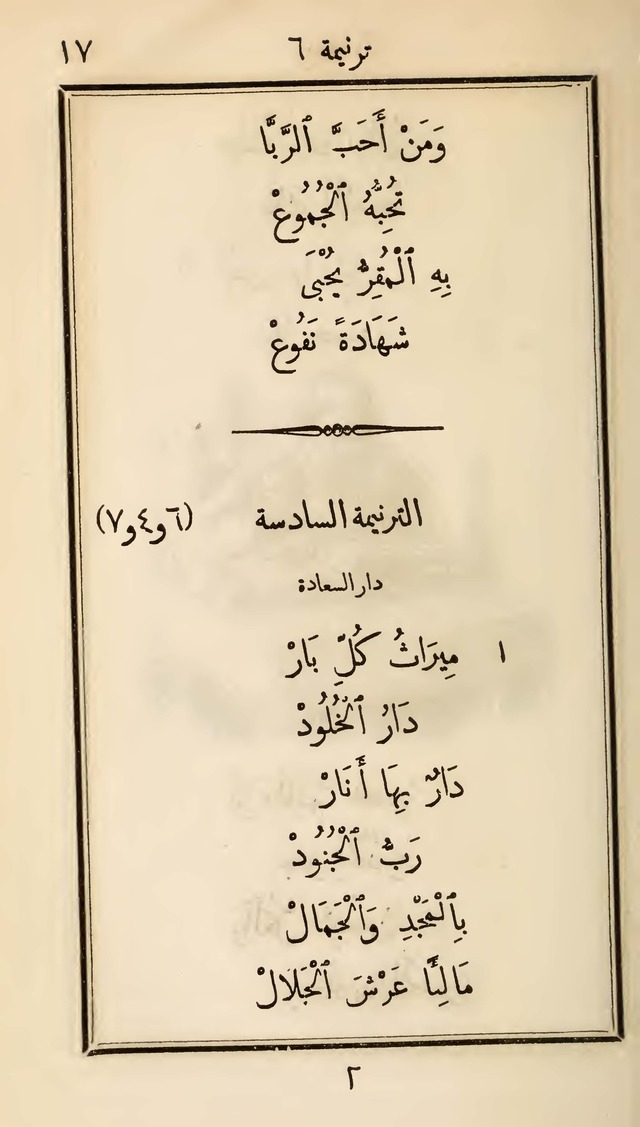 ترنيمة ٦ ١٧
وَمَنْ أَحَبَّ ٱلرَّبَّا
تُحِبُّهُ ٱلْجُمُوعْ
بِهِ ٱلْمُقِرُّ يُحْبَى
شَهَادَةً نَفُوعْ
الترنيمة السادسة (٦و٤و٧)
دار السعادة
١ مِيرَاثُ كُلِّ بَارْ
دَارُ ٱلْخُلُودْ
دَارٌ بِهَا أَنَارْ
رَبُّ ٱلْجُنُودْ
بِٱلْمَجْدِ وَٱلْجَمَالْ
مَالِئًا عَرْشَ ٱلْجَلَالْ
٢